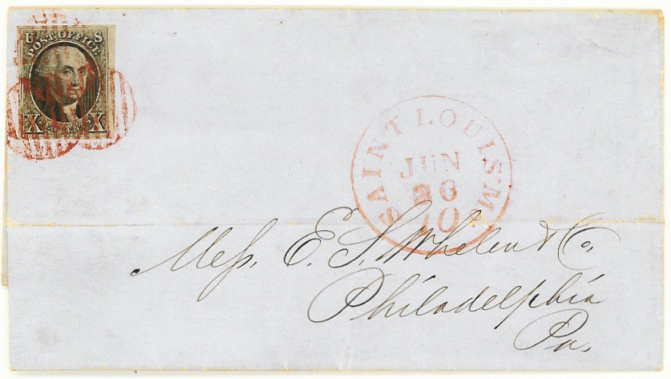 U S
POST OFFICE
X X
SAINT LOUIS Mo.
JUN
26
10
Mess. E. S. Whelen & Co.
Philadelphia
Pa.